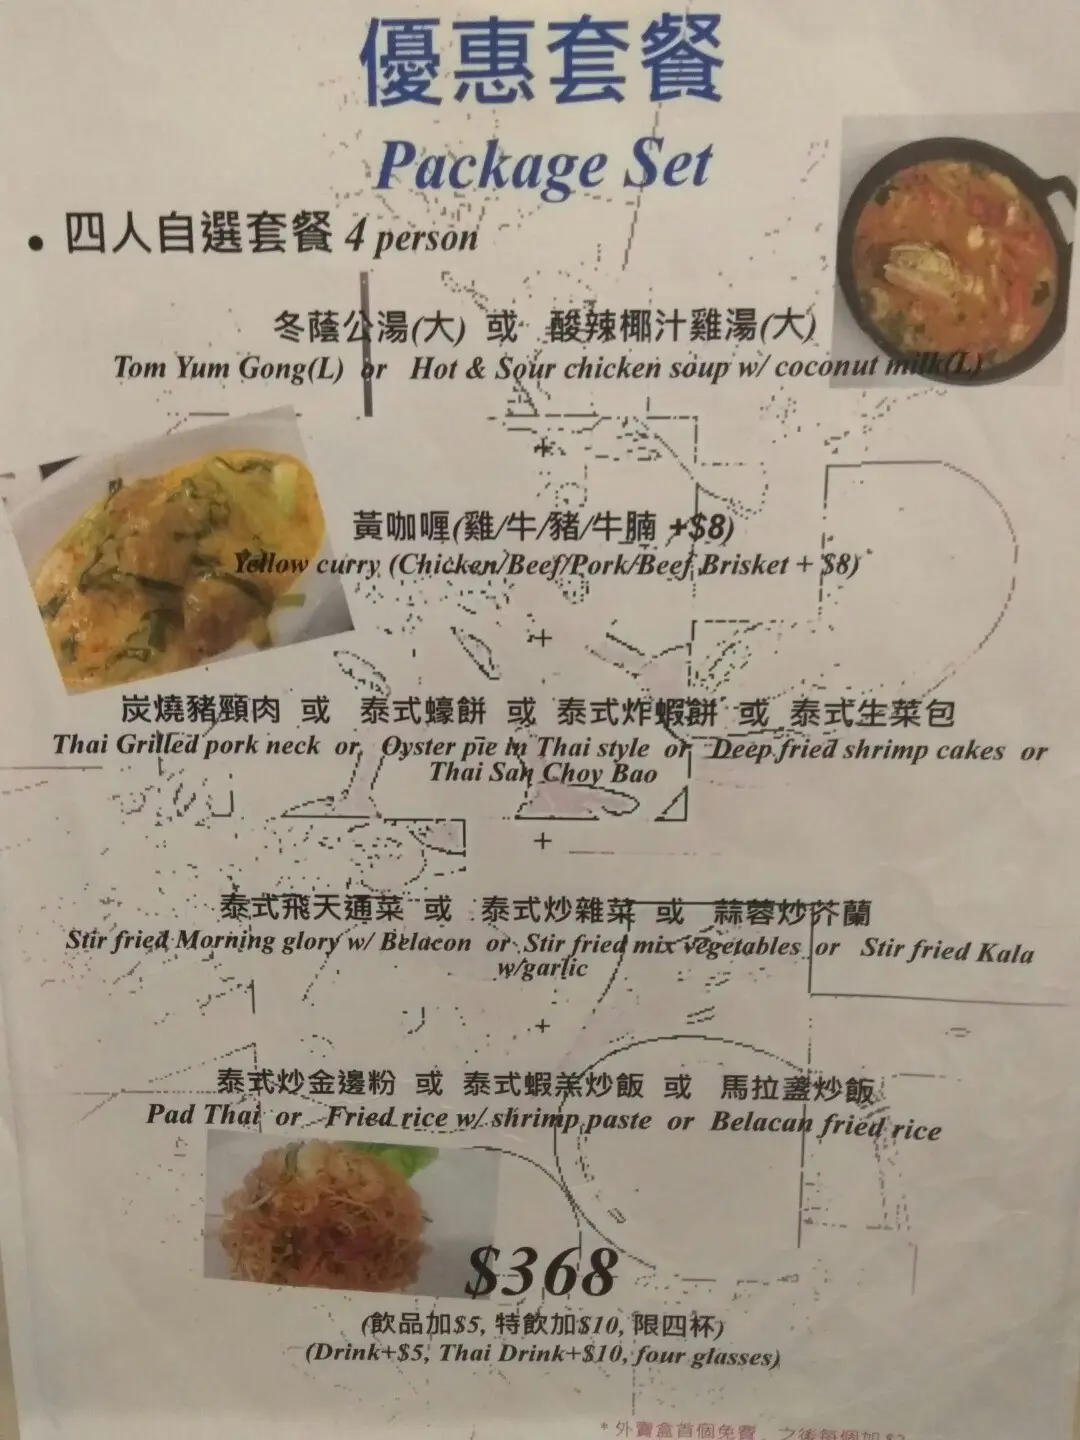 優惠套餐
Package Set
• 四人自選套餐 4 person
冬蔭公湯(大) 或 酸辣椰汁雞湯(大)
Tom Yum Gong(L) or Hot & Sour chicken soup w/ coconut milk(L)
+
黃咖喱(雞/牛/豬/牛腩 +$8)
Yellow curry (Chicken/Beef/Pork/Beef Brisket + $8)
+
炭燒豬頸肉 或 泰式蠔餅 或 泰式炸蝦餅 或 泰式生菜包
Thai Grilled pork neck or Oyster pie in Thai style or Deep fried shrimp cakes or
Thai San Choy Bao
+
泰式飛天通菜 或 泰式炒雜菜 或 蒜蓉炒芥蘭
Stir fried Morning glory w/ Belacon or Stir fried mix vegetables or Stir fried Kala
w/garlic
+
泰式炒金邊粉 或 泰式蝦羔炒飯 或 馬拉盞炒飯
Pad Thai or Fried rice w/ shrimp paste or Belacan fried rice
$368
(飲品加$5, 特飲加$10, 限四杯)
(Drink+$5, Thai Drink+$10, four glasses)
* 外賣盒首個免費，之後每個加 $2